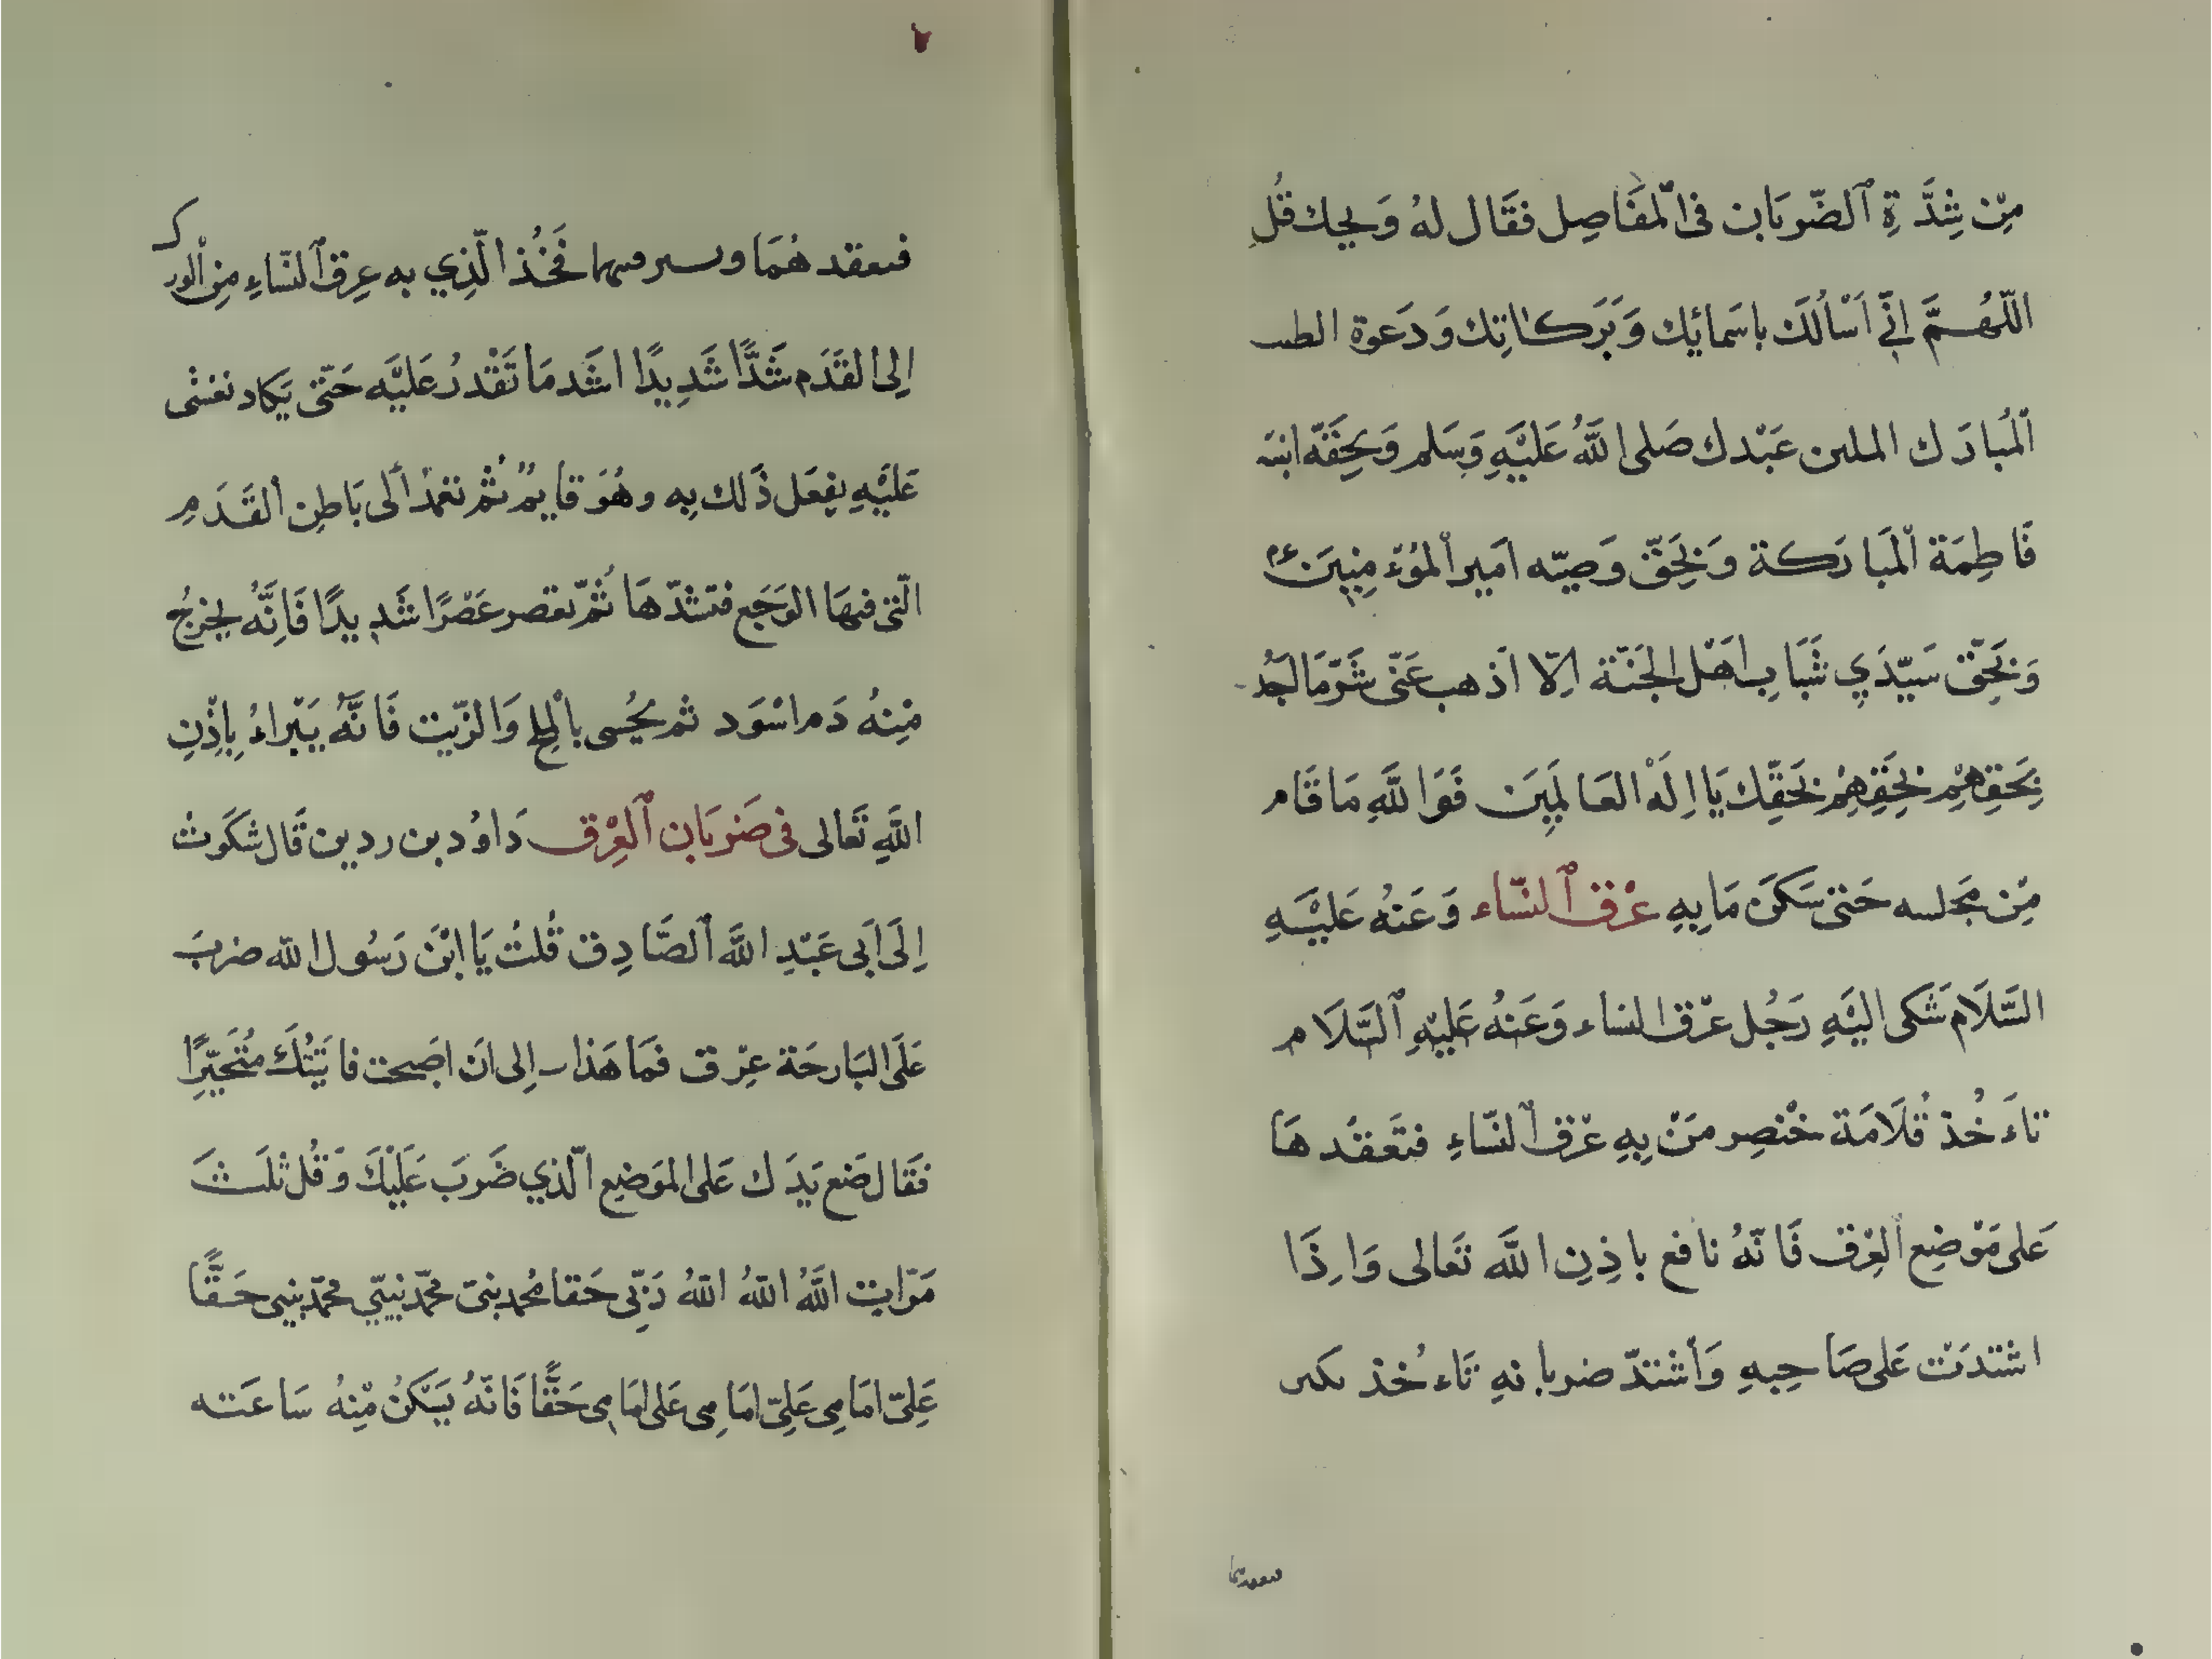 مِنْ شِدَّةِ الضّرَبَان في الْمَفَاصِل فقَال لهُ وَيحك قُل
اللّهُمَّ إنّي اَسْألُكَ باسَمائِك وَبَرَكاتِك وَدَعوة الطيب
المُبارَك المكين عَبْدك صَلى اللَّهُ عَلَيْهِ وَسَلم وَبحِقّه ابنته
فَاطِمَة الْمبَارَكة وَبَحِقّ وَصيّه اَمير الْمُؤمِنِينَ
وَبَحِقّ سَيّدَي شَبَابِ اَهْل الجَنّة اِلّا اَذهب عَنّى شَرّ مَا اَجُد
بَحَقِهِمْ بَحَقِهِمْ بَحَقّك يَا اِلَه العَالَمِينَ فَوَاللَّهِ مَا قَام
مِنْ مَجلسه حَتى سَكَنَ مَا بِهِ عرْق النسَّاء وَعَنهُ عَلَيْهِ
السَّلَام شَكى اليْهِ رَجُل عرْق النساء وَعَنهُ عَليْهِ السَّلَام
تاءَخُذ قُلَامَة خنْصِر مَنْ بِهِ عرْق النّسَاءِ فتَعقدهَا
عَلى مَوْضِع العِرْق فَانّهُ نافع باذِنِ اللَّه تعَالى وَاِذَا
اشتدَتْ عَلى صَاحِبهِ وَأشتدّ ضربانهِ تَاءخُذ تكتين
فتعقدهما
فتعقدهُمَا وتشد فيهما فَخُذ الّذِي به عِرق النّسَاءِ مِنْ الورك
اِلى القَدَم شَدًّا شَدِيدًا اشَد مَا تَقْدرُ عَليْه حَتّى يَكاد يغشى
عَلَيْهِ يفعَل ذَلك بِه وهُوَ قايمٌ ثُمْ تعمدْ اَلى بَاطِن القَدَمِ
الّتى فيهَا الوَجَع فتشدّهَا ثُمّ تعصر عَصْرًا شَدِيدًا فَانَّهُ يخرجُ
مِنهُ دَم اسْوَد ثم يحُسى بالملح وَالزّيت فَانَّهُ يَبْراءُ بِاِذْنِ
اللَّهِ تَعَالى فى ضَرَبَان العِرْق دَاوُد بن ردين قَال شكَوت
اِلَى اَبى عَبْدِ اللَّه الصَّادِق قُلتُ يَا ابْنَ رَسُول الله ضربَ
عَلَى البَارحَة عِرْق فمَا هَذا اِلى اَن اصَبحت فاتَيْتُكَ مُتَحَيِّرًا
فقَال ضَع يَدَك عَلى المَوضِع الّذي ضَرَبَ عَلَيْكَ وَقُل ثلَثَ
مَرّات اللَّهُ اللهُ اللهُ رَبِّى حَقا محُمد نبىّ محّمد نبيّي محّمد نبيى حَقًّا
عَلِيّ امَامِى عَلِيّ امَامِى عَلى امَامِى حَقًّا فَانّهُ يَسْكنُ مِنهُ سَاعَته